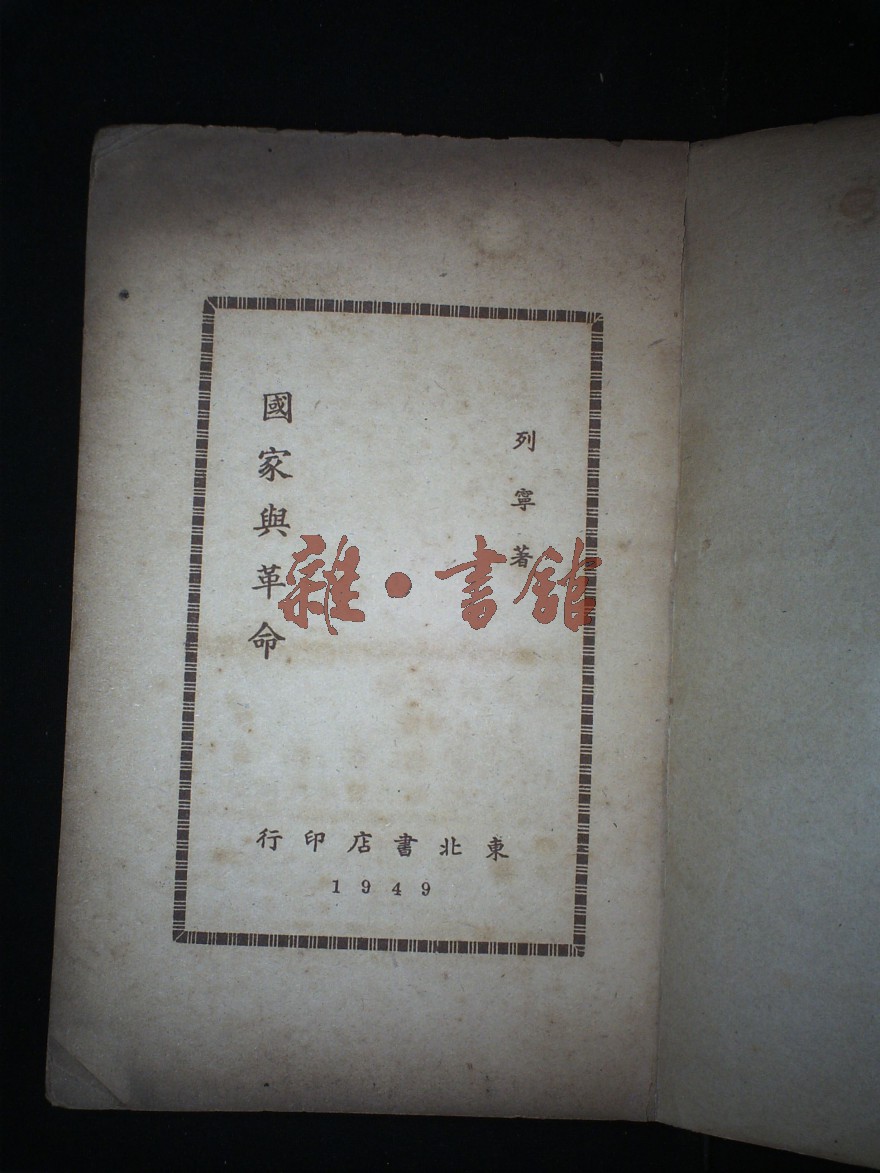 列寧著
國家與革命
東北書店印行
1949
雜·書舘